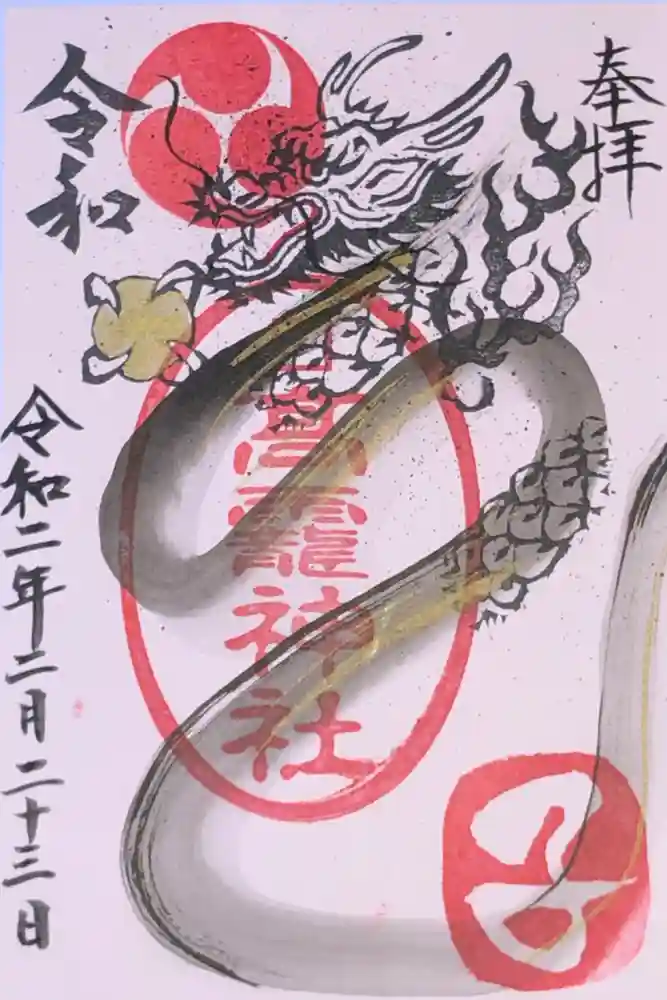 奉拝
高龗神社
令和
令和二年二月二十三日
子